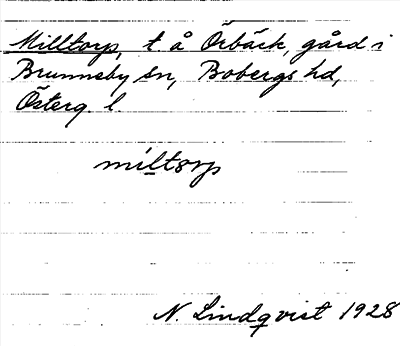 Milltorp, t. å Örbäck, gård i
Brunneby sn, Bobergs hd,
Österg. l.
miltorp
N. Lindqvist 1928